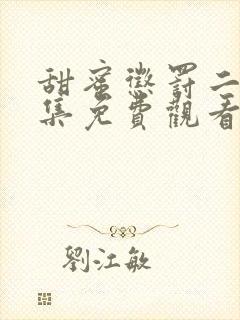 甜蜜懲罰二
集免費觀看
劉江敏